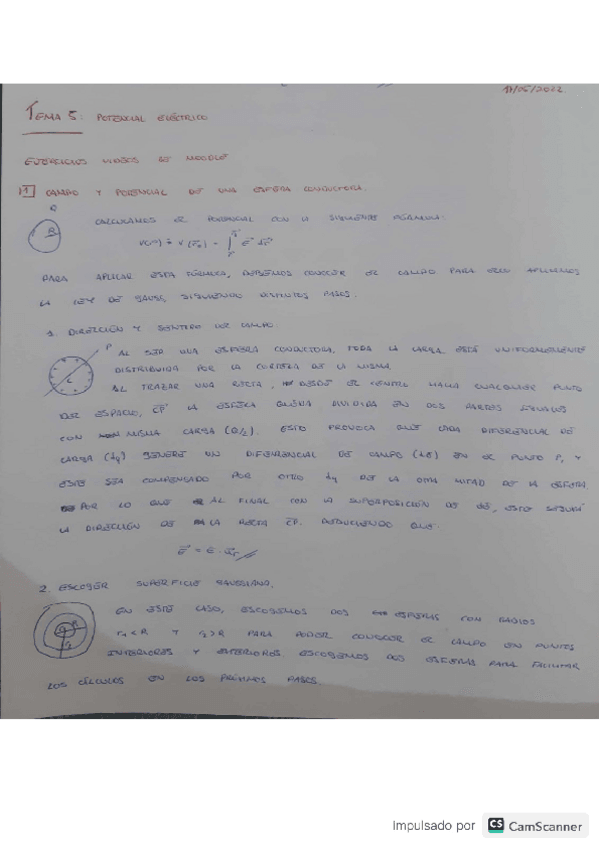 17/05/2022.
TEMA 5: POTENCIAL ELÉCTRICO
EJERCICIOS VIDEOS DE MOODLE
1 CAMPO Y POTENCIAL DE UNA ESFERA CONDUCTORA.
R
CALCULAMOS EL POTENCIAL CON LA SIGUIENTE FÓRMULA:
PARA APLICAR ESTA FÓRMULA, DEBEMOS CONOCER EL CAMPO PARA ELLO APLICAMOS
LA LEY DE GAUSS, SIGUIENDO DISTINTOS PASOS.
1. DIRECCIÓN Y SENTIDO DEL CAMPO.
P AL SER UNA ESFERA CONDUCTORA, TODA LA CARGA ESTÁ UNIFORMEMENTE
DISTRIBUIDA POR LA CORTEZA DE LA MISMA.
C AL TRAZAR UNA RECTA, DESDE EL CENTRO HACIA CUALQUIER PUNTO
DEL ESPACIO, CP LA ESFERA QUEDA DIVIDIDA EN DOS PARTES IGUALES
CON MISMA CARGA (Q/2). ESTO PROVOCA QUE CADA DIFERENCIAL DE
CARGA (dq) GENERE UN DIFERENCIAL DE CAMPO (dE) EN EL PUNTO P, Y
ESTE SEA COMPENSADO POR OTRO dq DE LA OTRA MITAD DE LA ESFERA
POR LO QUE AL FINAL CON LA SUPERPOSICIÓN DE dE, ESTE SEGUIRÁ
LA DIRECCIÓN DE LA RECTA CP. DEDUCIENDO QUE:
E⃗ = E · u⃗r
2. ESCOGER SUPERFICIE GAUSSIANA.
EN ESTE CASO, ESCOGEMOS DOS ESFERAS CON RADIOS
r1 < R Y r2 > R PARA PODER CONOCER EL CAMPO EN PUNTOS
INTERIORES Y EXTERIORES. ESCOGEMOS DOS ESFERAS PARA FACILITAR
LOS CÁLCULOS EN LOS PRÓXIMOS PASOS.
Impulsado por CS CamScanner